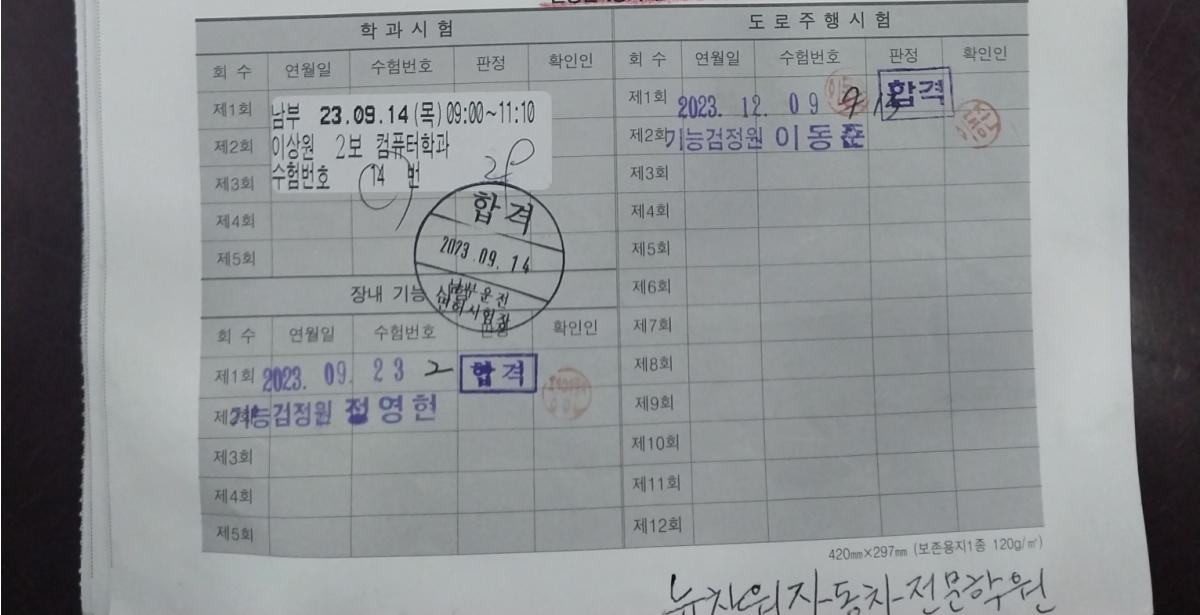 학과시험
회 수 연월일 수험번호 판정 확인인
제1회 남부 23.09.14(목)09:00~11:10
제2회 이상원 2보 컴퓨터학과
제3회 수험번호 14 번
제4회
제5회
합격
2023.09.14
남부운전
면허시험장
장내 기능
회 수 연월일 수험번호 확인인
제1회 2023. 09. 23 2 합격
기능검정원 정영현
제3회
제4회
제5회
도로주행시험
회 수 연월일 수험번호 판정 확인인
제1회 2023. 12. 09 합격
제2회 기능검정원 이동준
제3회
제4회
제5회
제6회
제7회
제8회
제9회
제10회
제11회
제12회
420㎜×297㎜ (보존용지1종 120g/㎡)
자동차전문학원